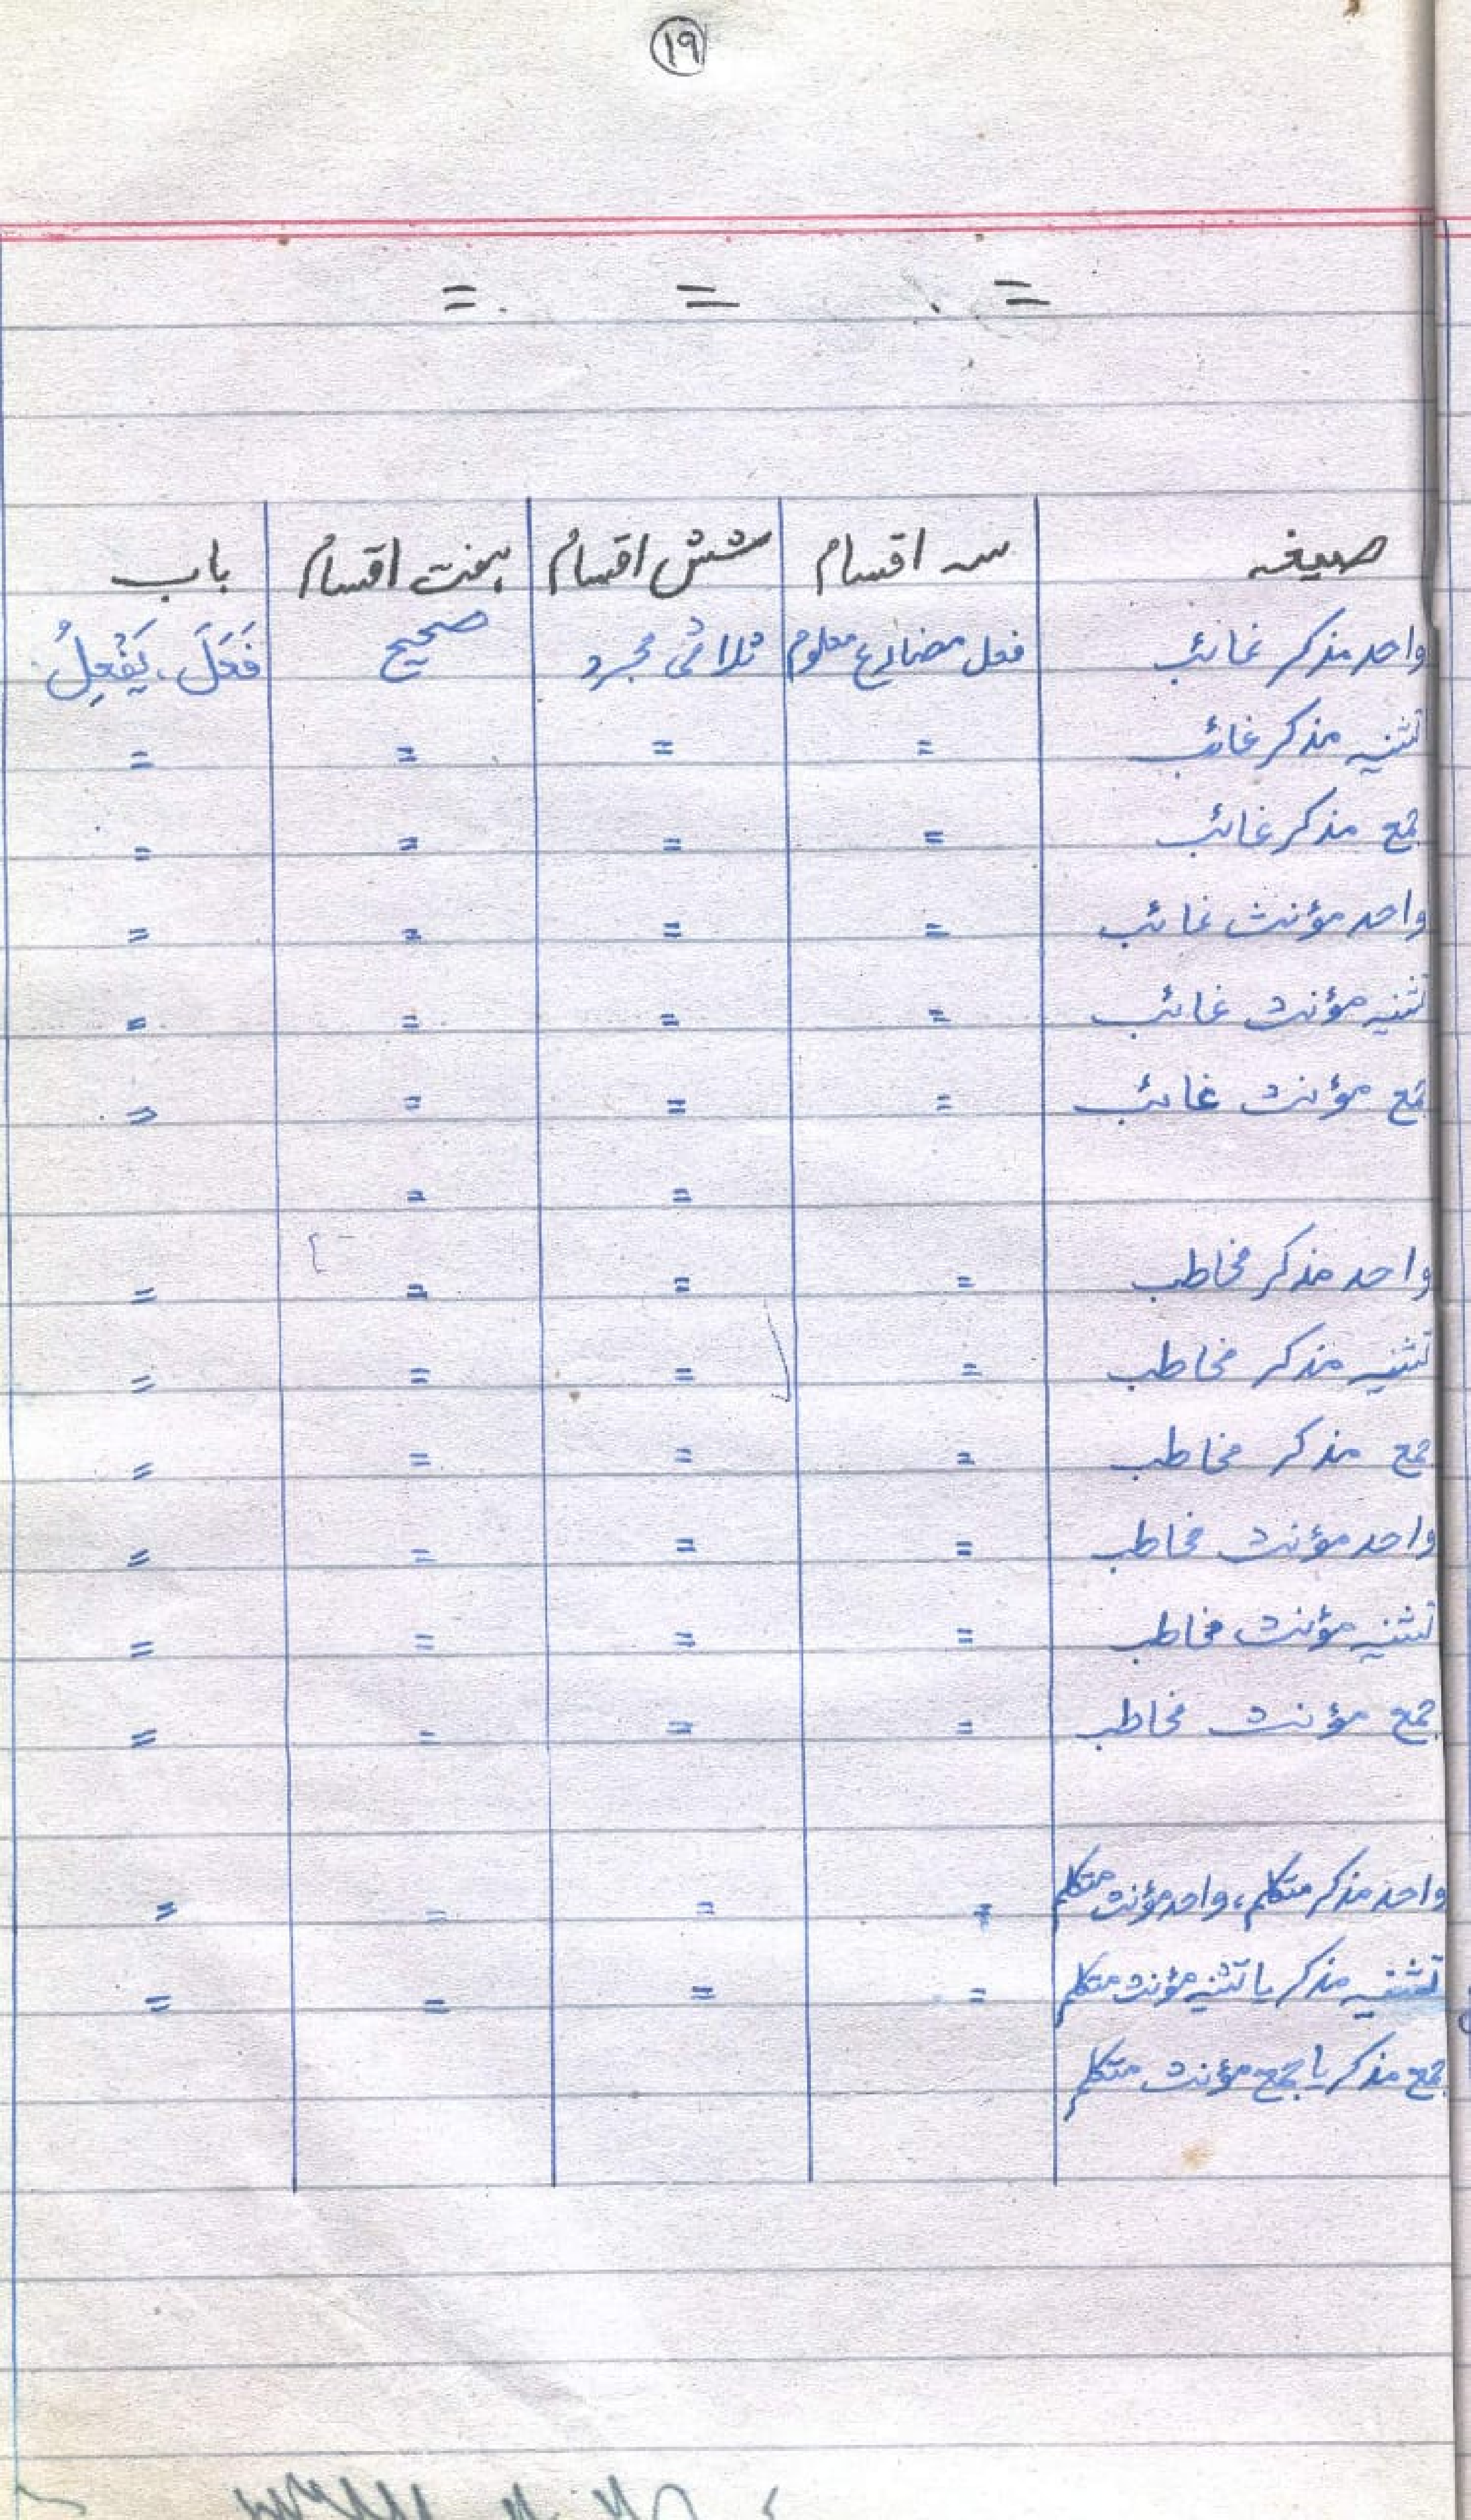 ۱۹
= = =
صیغہ سہ اقسام شش اقسام ہفت اقسام باب
واحد مذکر غائب فعل مضارع معلوم ثلاثی مجرد صحیح فَعَلَ، یَفْعِلُ
تثنیہ مذکر غائب = = = =
جمع مذکر غائب = = = =
واحد مؤنث غائب = = = =
تثنیہ مؤنث غائب = = = =
جمع مؤنث غائب = = = =
= =
واحد مذکر مخاطب = = = =
تثنیہ مذکر مخاطب = = = =
جمع مذکر مخاطب = = = =
واحد مؤنث مخاطب = = = =
تثنیہ مؤنث مخاطب = = = =
جمع مؤنث مخاطب = = = =
واحد مذکر متکلم، واحد مؤنث متکلم = = = =
تثنیہ مذکر یا تثنیہ مؤنث متکلم = = = =
جمع مذکر یا جمع مؤنث متکلم